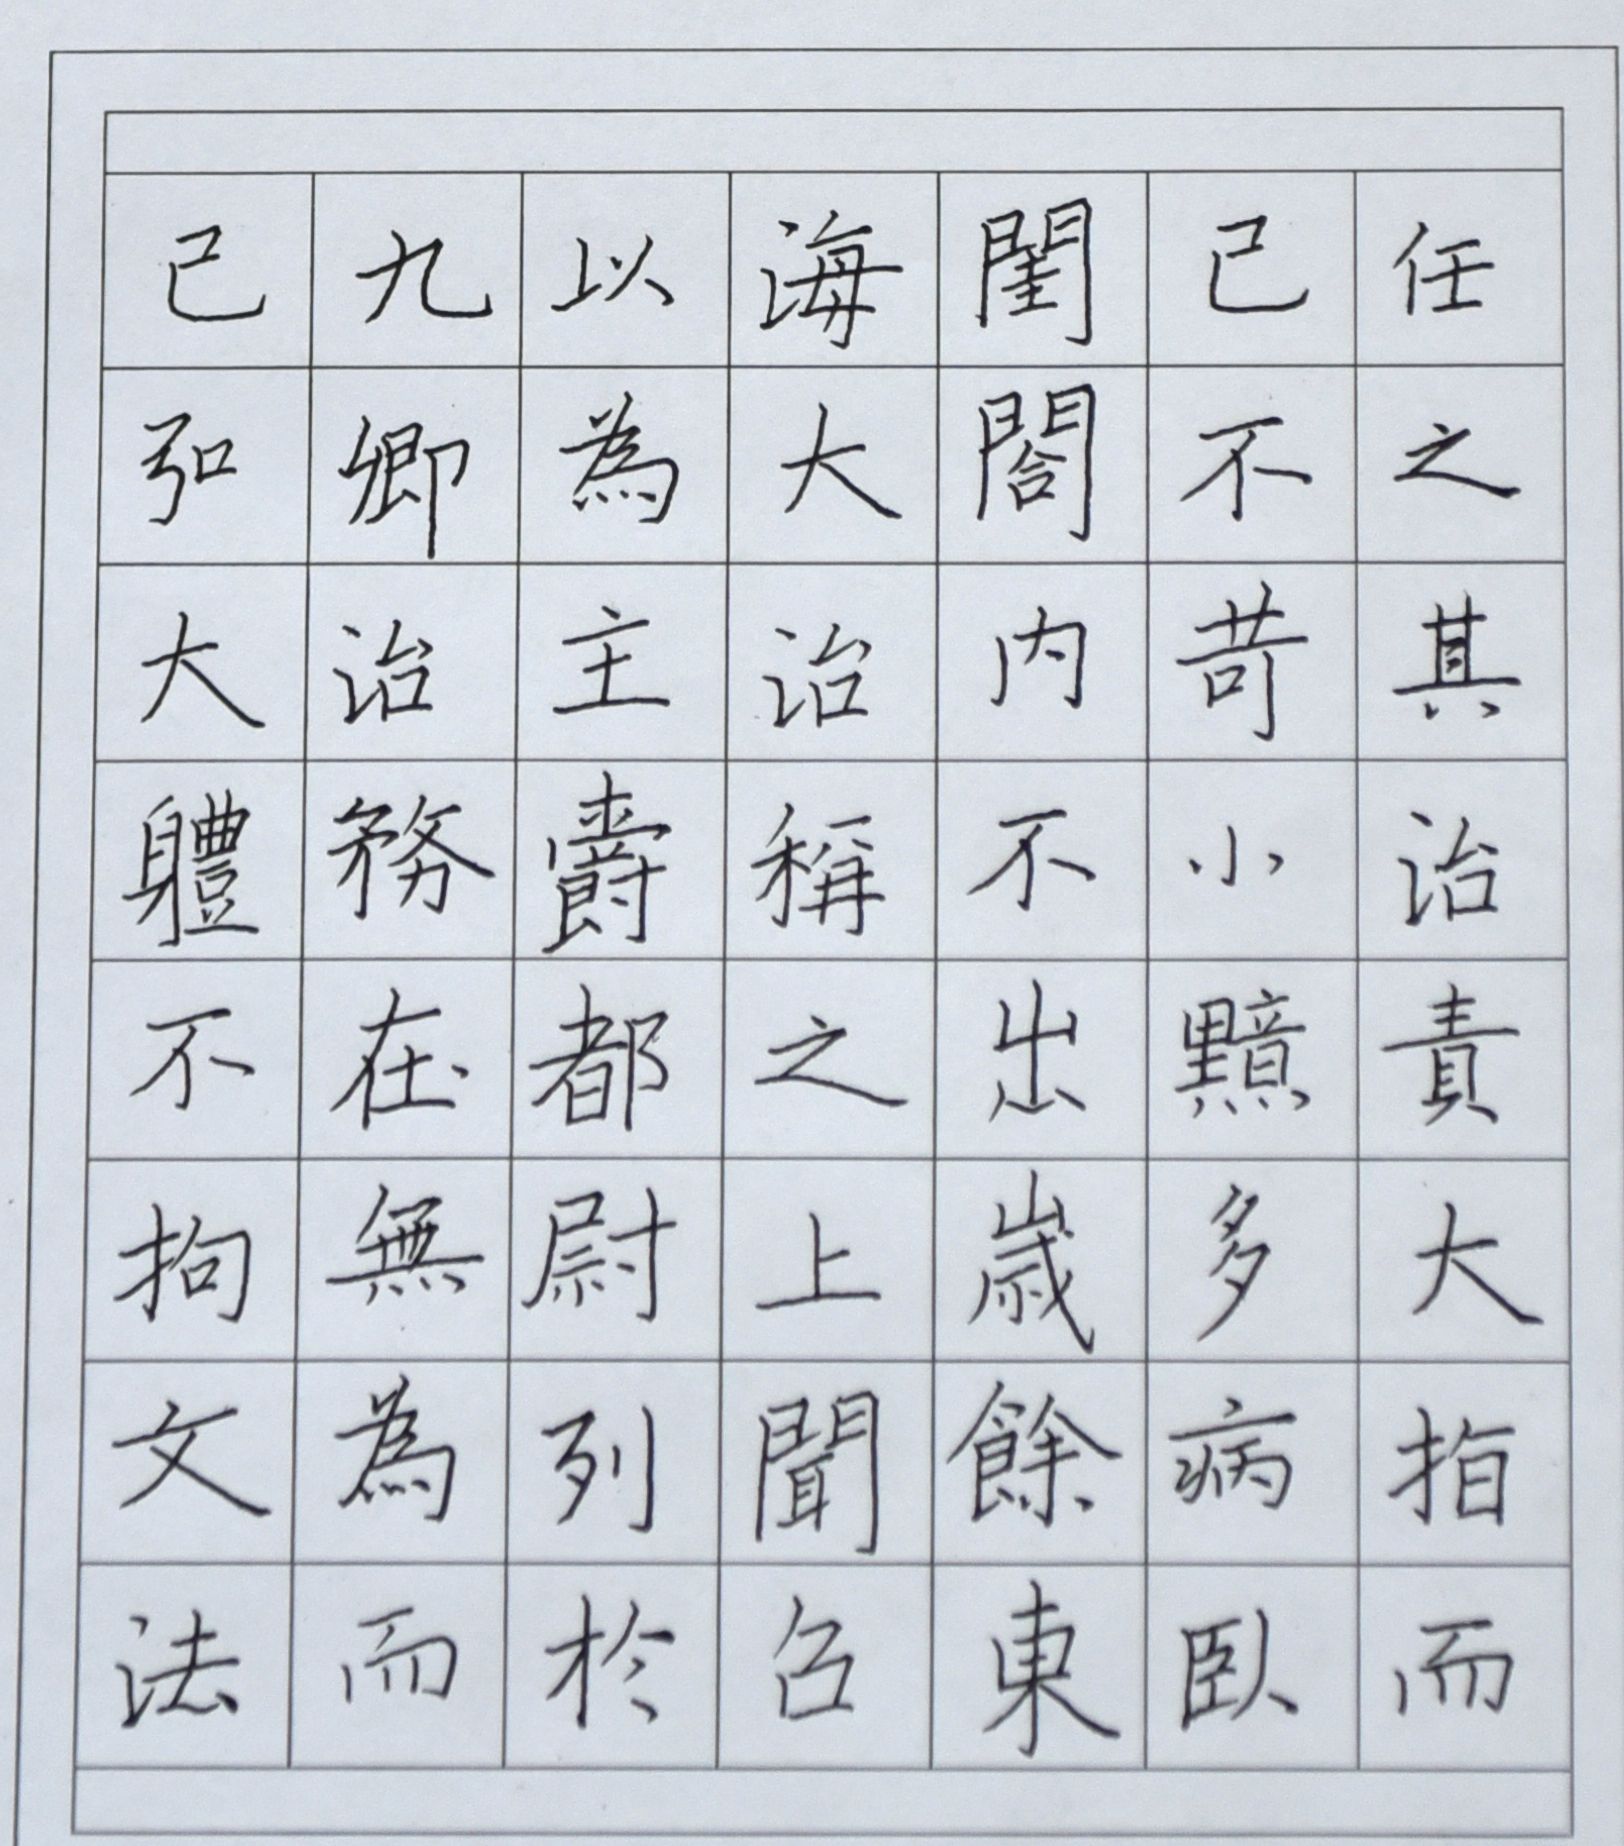 任之其治責大指而
已不苛小黯多病臥
閨閤内不出歲餘東
海大治稱之上聞召
以為主爵都尉列於
九卿治務在無為而
已弘大軆不拘文法